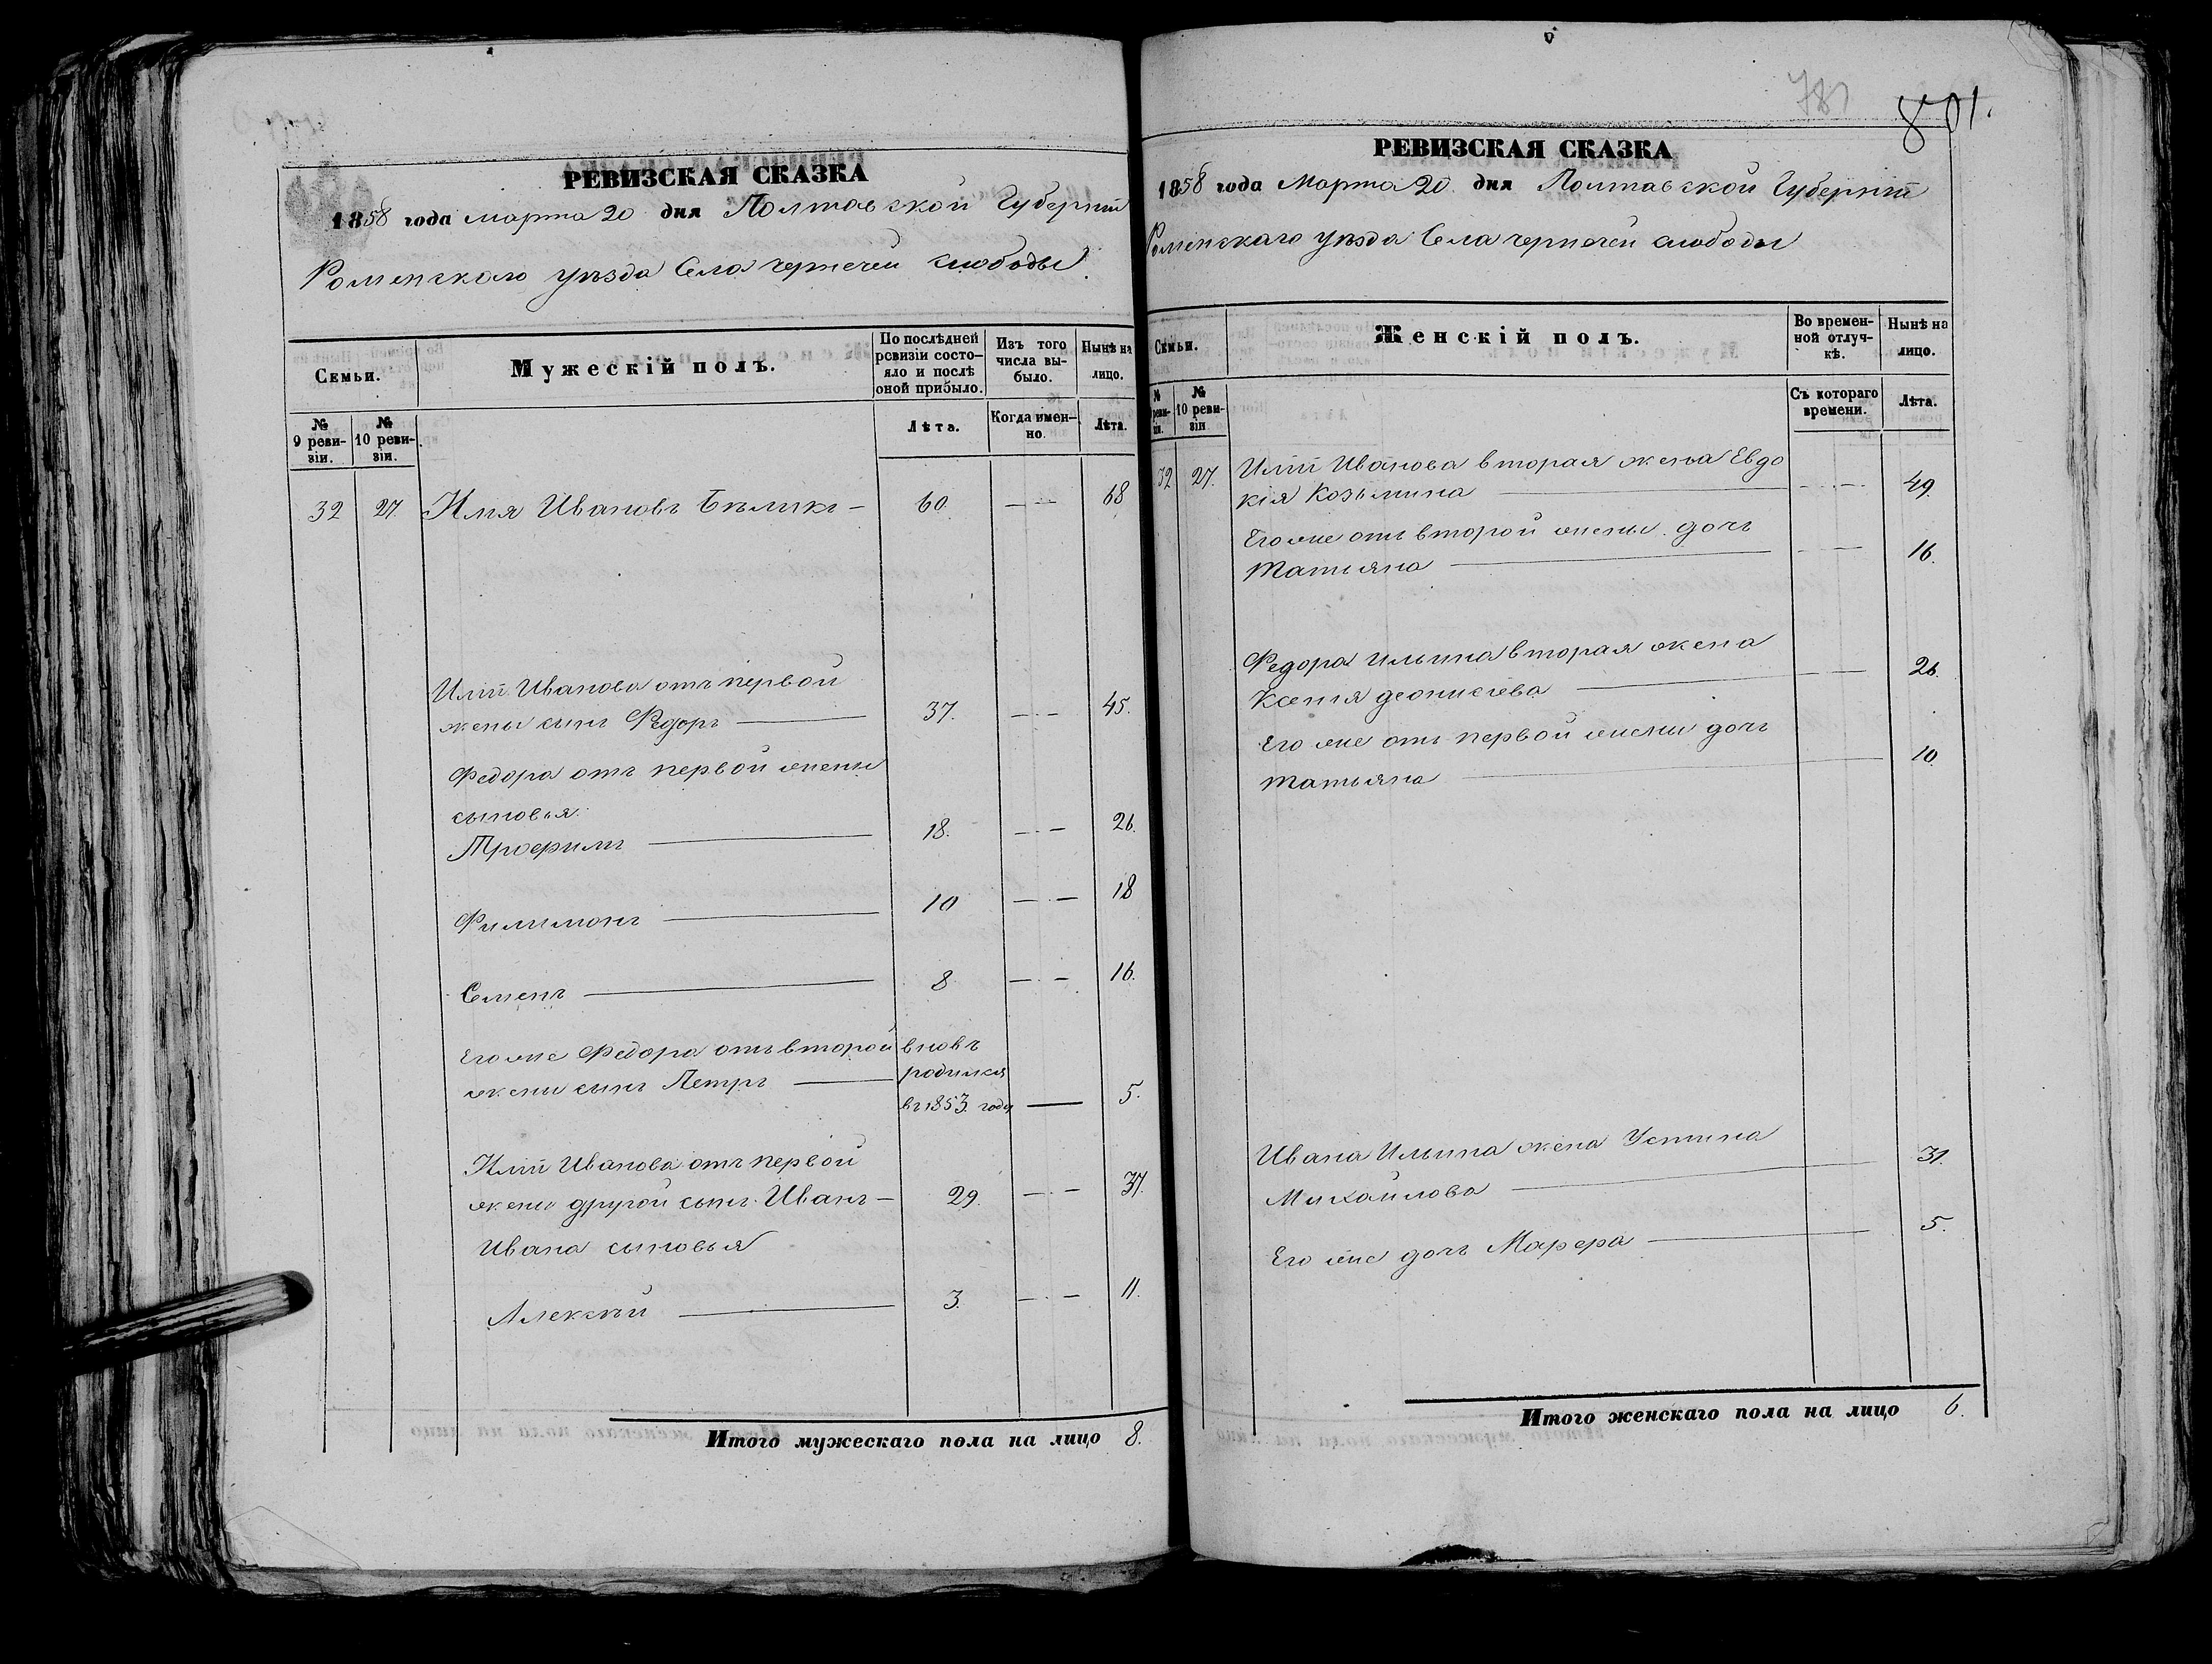 РЕВИЗСКАЯ СКАЗКА
1858 года марта 20 дня Полтавской Губерніи
Роменскаго уѣзда Села чернечей слободы
Семьи.
Мужескій полъ.
По послѣдней ревизіи состо-яло и послѣ оной прибыло.
Изъ того числа вы-было.
Нынѣ на лицо.
№ 9 реви-зіи.
№ 10 реви-зіи.
Лѣта.
Когда имен-но.
Лѣта.
32 27. Илія Ивановъ Бѣликъ — 60. — 68
Иліи Иванова отъ первой
жены сынъ Федоръ — 37. — 45.
Федора отъ первой жены
сыновья:
Трофимъ — 18. — 26.
Филимонъ — 10 — 18
Семенъ — 8 — 16.
Его же Федора отъ второй вновь
жены сынъ Петръ — родился
въ 1853 году — 5.
Иліи Иванова отъ первой
жены другой сынъ Иванъ — 29. — 37.
Ивана сыновья
Алексѣй — 3. — 11.
Итого мужескаго пола на лицо 8.
781 801.
РЕВИЗСКАЯ СКАЗКА
1858 года Марта 20 дня Полтавской Губерніи
Роменскаго уѣзда Села чернечей слободы
Семьи.
Женскій полъ.
Во времен-ной отлуч-кѣ.
Нынѣ на лицо.
№ реви-зіи.
№ 10 реви-зіи
Съ котораго времени.
Лѣта.
32 27. Иліи Иванова вторая жена Евдо
кія Козьмина — 49.
Его же отъ второй жены дочь
Татьяна — 16.
Федора Ильина вторая жена
Ксенія деонисіева — 26.
Его же отъ первой жены дочь
Татьяна — 10.
Ивана Ильина жена Устина
Михайлова — 31.
Его же дочь Марфа — 5.
Итого женскаго пола на лицо 6.